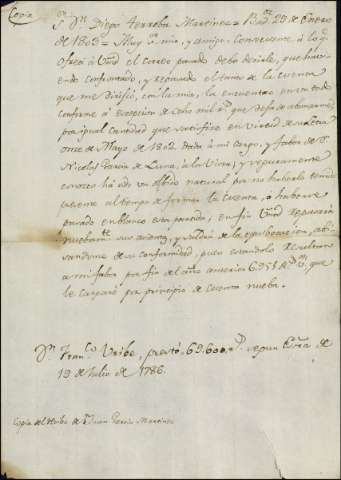 Copia
Sr. Dn. Diego Martinez = Madrid 29 de Enero
de 1803 = Muy Sr. mio, y amigo: Consecuente à lo q.
ofreci à Vmd el correo pasado debo decirle, que havi-
endo confrontado, y el tanto de la cuenta
que me dirijió, con la mia, la encuentro en un todo
conforme à excepcion de ocho mil rs. que deja de abonarme,
por igual cantidad que satisfice en virtud de su Letra
once de Mayo de 1802 dada à mi cargo, y favor de Dn.
Nicolas Garcia de Luna, à la Vista; y seguramente
conozco ha sido un olvido natural por no haberlo tenido
presente al tiempo de formar la cuenta, ò haberse
pasado en blanco esta partida, en fin Vmd repasará
nuebamte. sus asientos, y saldrá de la equibocacion, abi-
sandome de su conformidad, pues estandolo resultan
a mi favor por fin de año anterior 6.958 rs. que
le cargaré por principio de cuenta nueba.
Dn. Franco. Uribe, prestó 69.600 rs. segun Esra. de
19 de Julio de 1786.
Copia del de Dn Juan Garcia Martinez